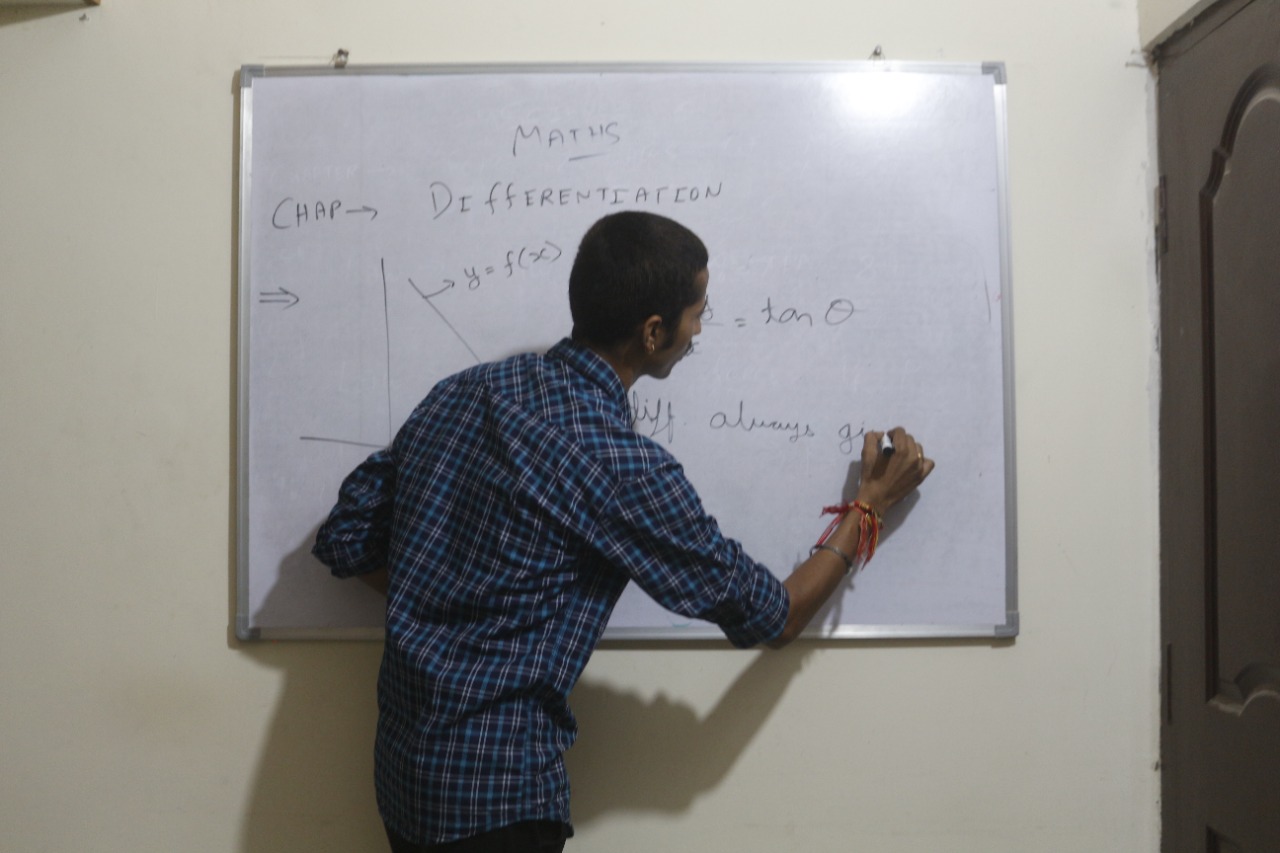 MATHS
CHAP → DIFFERENTIATION
⇒
y = f(x)
= tan θ
diff. always gi